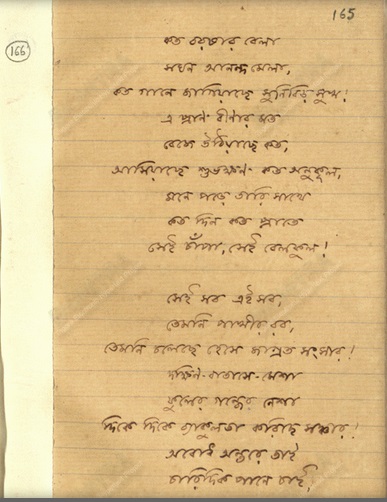 165
166
কত বরষার বেলা
সঘন আনন্দ মেলা,
কত গানে জাগিয়াছে সুনিবিড় সুখ!
এ প্রাণ বীণার মত
বেজে উঠিয়াছে কত,
আসিয়াছে শুভক্ষণ কত অনুকূল,
মনে পড়ে তারি সাথে
কত দিন কত প্রাতে
সেই চাঁপা, সেই বেলফুল!
সেই সব এই সব,
তেমনি পাখীর রব,
তেমনি চলেছে হেসে জাগ্রত সংসার!
দক্ষিণ-বাতাসে-মেশা
ফুলের গন্ধের নেশা
দিকে দিকে ব্যাকুলতা করিছে সঞ্চার!
অবোধ অন্তরে তাই
চারিদিক পানে চাই,